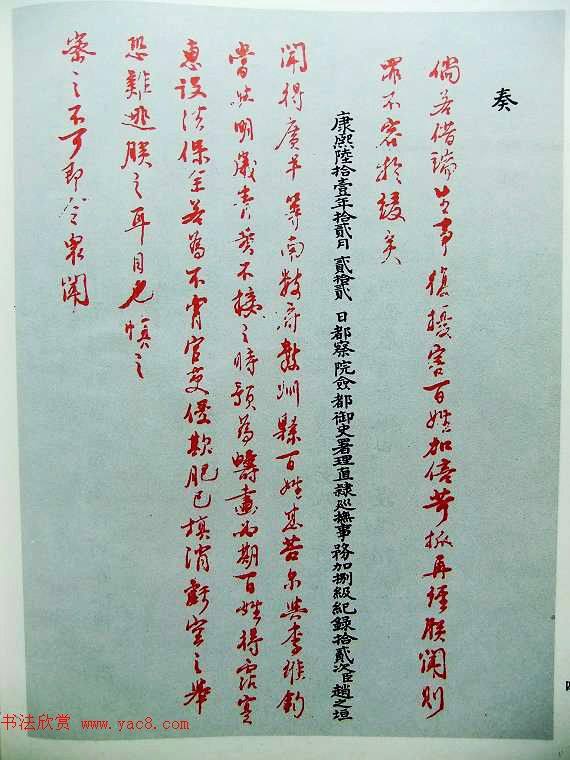 奏
倘若借端生事複擾害百姓加倍苛派再經朕聞則
罪不容於緩矣
康熙陸拾壹年拾貳月 貳拾貳 日都察院僉都御史署理直隸巡撫事務加捌級紀錄拾貳次臣趙之垣
聞得廣平等南數府數州縣百姓甚苦爾與李維鈞
當明歲青黃不接之時預為籌畫期百姓得沾實
惠設法保全若為不肖官吏侵欺肥己填消虧空之舉
恐難逃朕之耳目也慎之
密之不可即令衆聞
书法欣赏 www.yac8.com